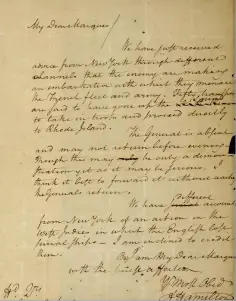 My Dear Marquis
We have just received
advice from New York through different
channels that the enemy are making
an embarkation with which they menace
the French fleet and army. Fifty transports
are said to have gone up the Sound
to take in troops and proceed directly
to Rhode Island.
The General is absent
and may not return before evening.
Though this may be only a demon
stration yet as it may be serious, I
think it best to forward it without waiting
the Generals return.
We have different
from New York of an action in the
West Indies in which the English lost
several ships - I am inclined to credit
them.
I am My Dear Marquis
with the
Yr Most Obed
A Hamilton